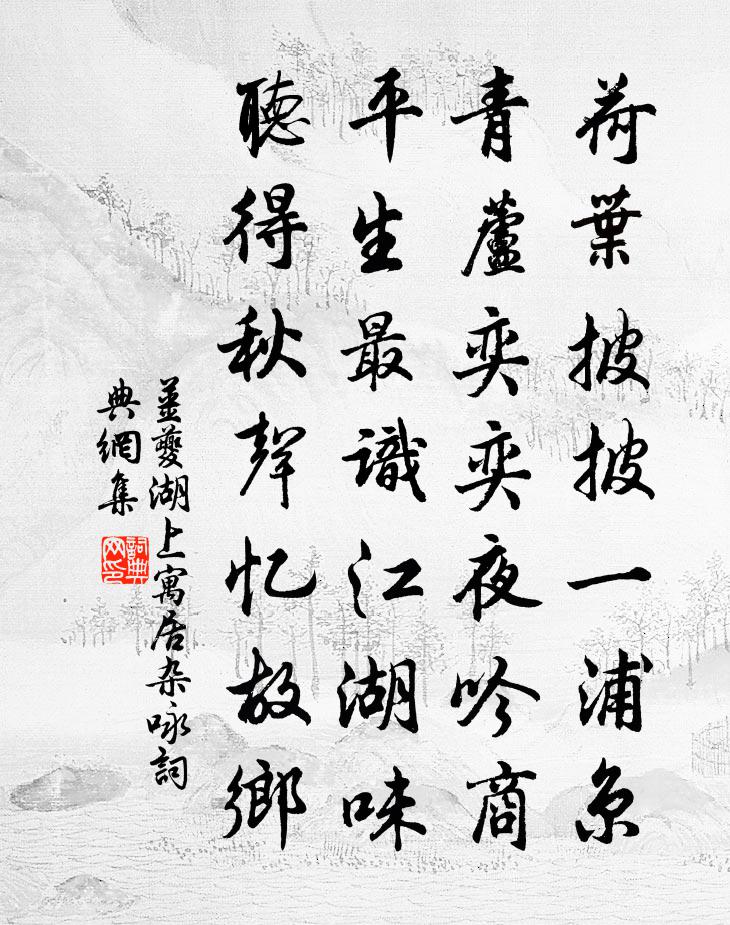 荷葉披披一浦凉
青蘆奕奕夜吟商
平生最識江湖味
聽得秋聲忆故鄉
薑夔湖上寓居杂咏詞
典網集
詞典
网印